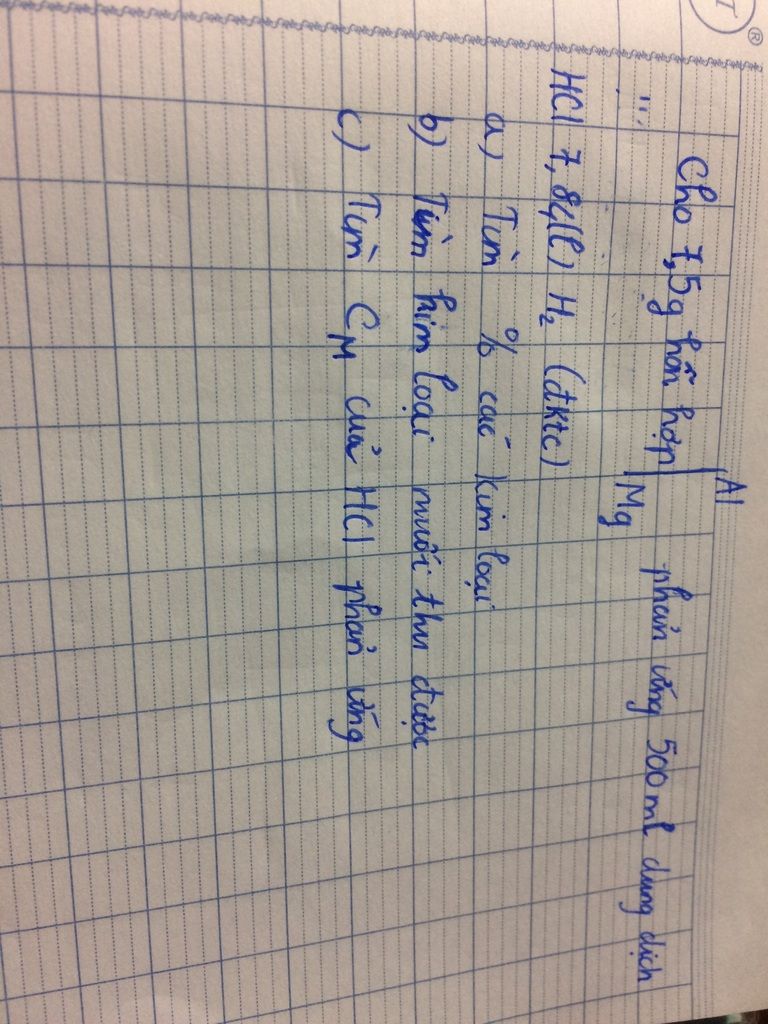 Cho 7,5g hỗn hợp Al
Mg phản ứng 500ml dung dịch
HCl 7,84(l) H₂ (đktc)
a) Tìm % các kim loại
b) Tìm kim loại muối thu được
c) Tìm CM của HCl phản ứng